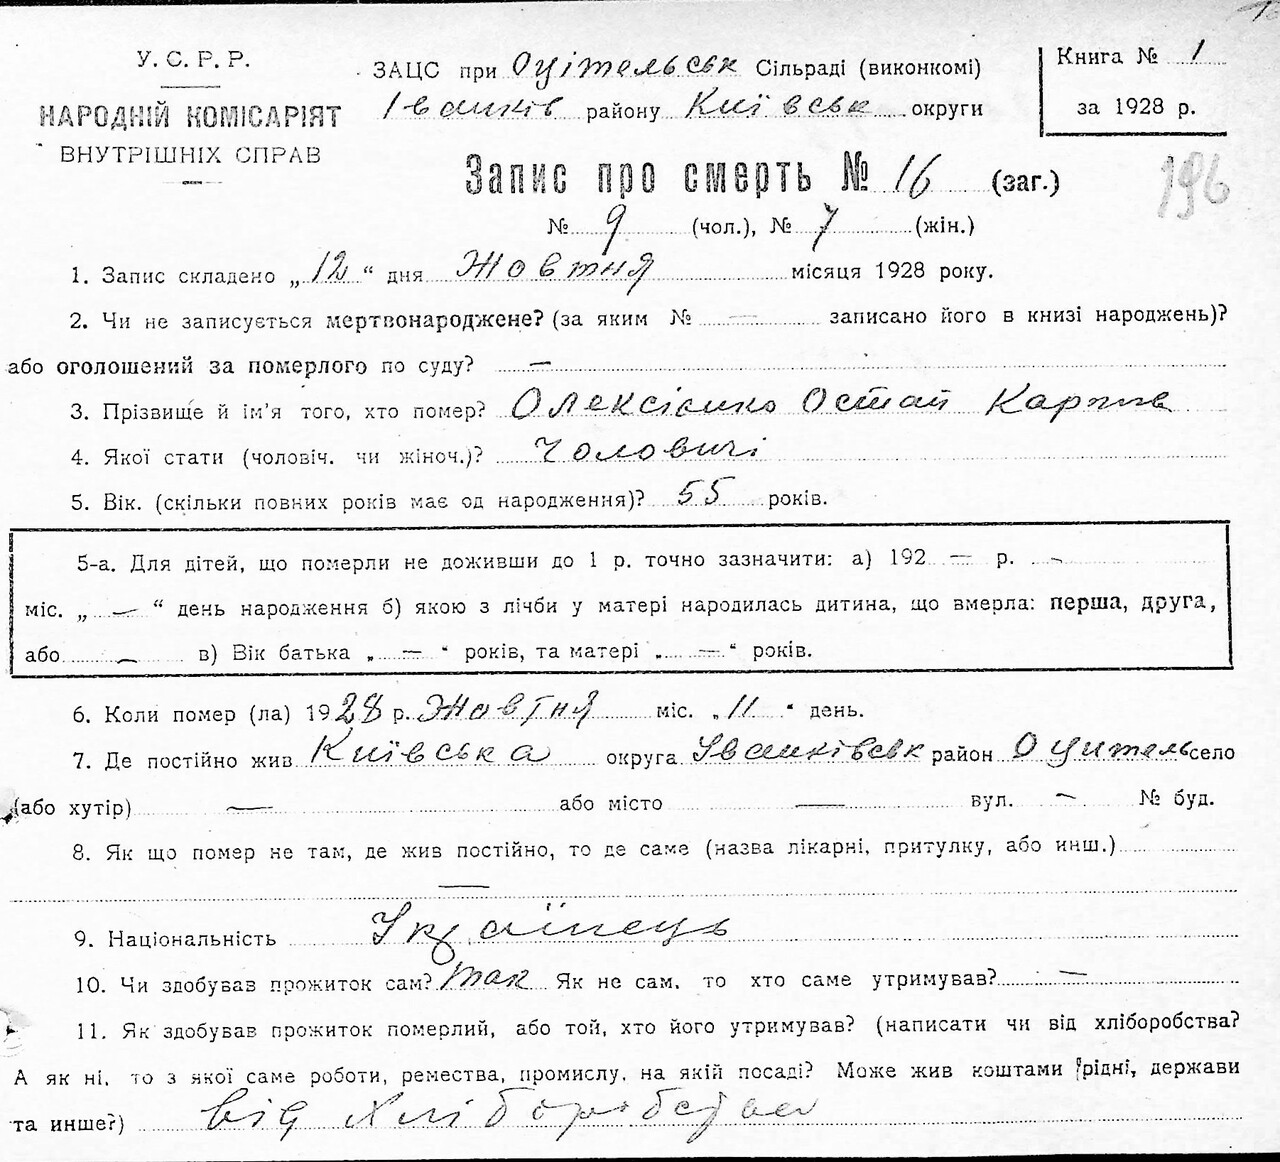 У. С. Р. Р.
НАРОДНІЙ КОМІСАРІЯТ
ВНУТРІШНІХ СПРАВ
ЗАЦС при Оцітельськ Сільраді (виконкомі)
Іванків району Київськ округи
Книга № 1
за 1928 р.
Запис про смерть № 16 (заг.)
196
№ 9 (чол.), № 7 (жін.)
1. Запис складено „12“ дня Жовтня місяця 1928 року.
2. Чи не записується мертвонароджене? (за яким № — записано його в книзі народжень)?
або оголошений за померлого по суду? —
3. Прізвище й ім'я того, хто помер? Олексієнко Остап Карпів
4. Якої стати (чоловіч. чи жіноч.)? Чоловичі
5. Вік. (скільки повних років має од народження)? 55 років.
5-а. Для дітей, що померли не доживши до 1 р. точно зазначити: а) 192 — р. —
міс. „ — “ день народження б) якою з лічби у матері народилась дитина, що вмерла: перша, друга,
або — в) Вік батька „ — “ років, та матері „ — “ років.
6. Коли помер (ла) 1928 р. Жовтня міс. „11“ день.
7. Де постійно жив Київська округа Іванківськ район Оцитель село
(або хутір) — або місто — вул. — № буд.
8. Як що помер не там, де жив постійно, то де саме (назва лікарні, притулку, або инш.)
—
9. Національність Українець
10. Чи здобував прожиток сам? так Як не сам, то хто саме утримував? —
11. Як здобував прожиток померлий, або той, хто його утримував? (написати чи від хліборобства?
А як ні, то з якої саме роботи, ремества, промислу, на якій посаді? Може жив коштами рідні, держави
та инше?) від хліборобства